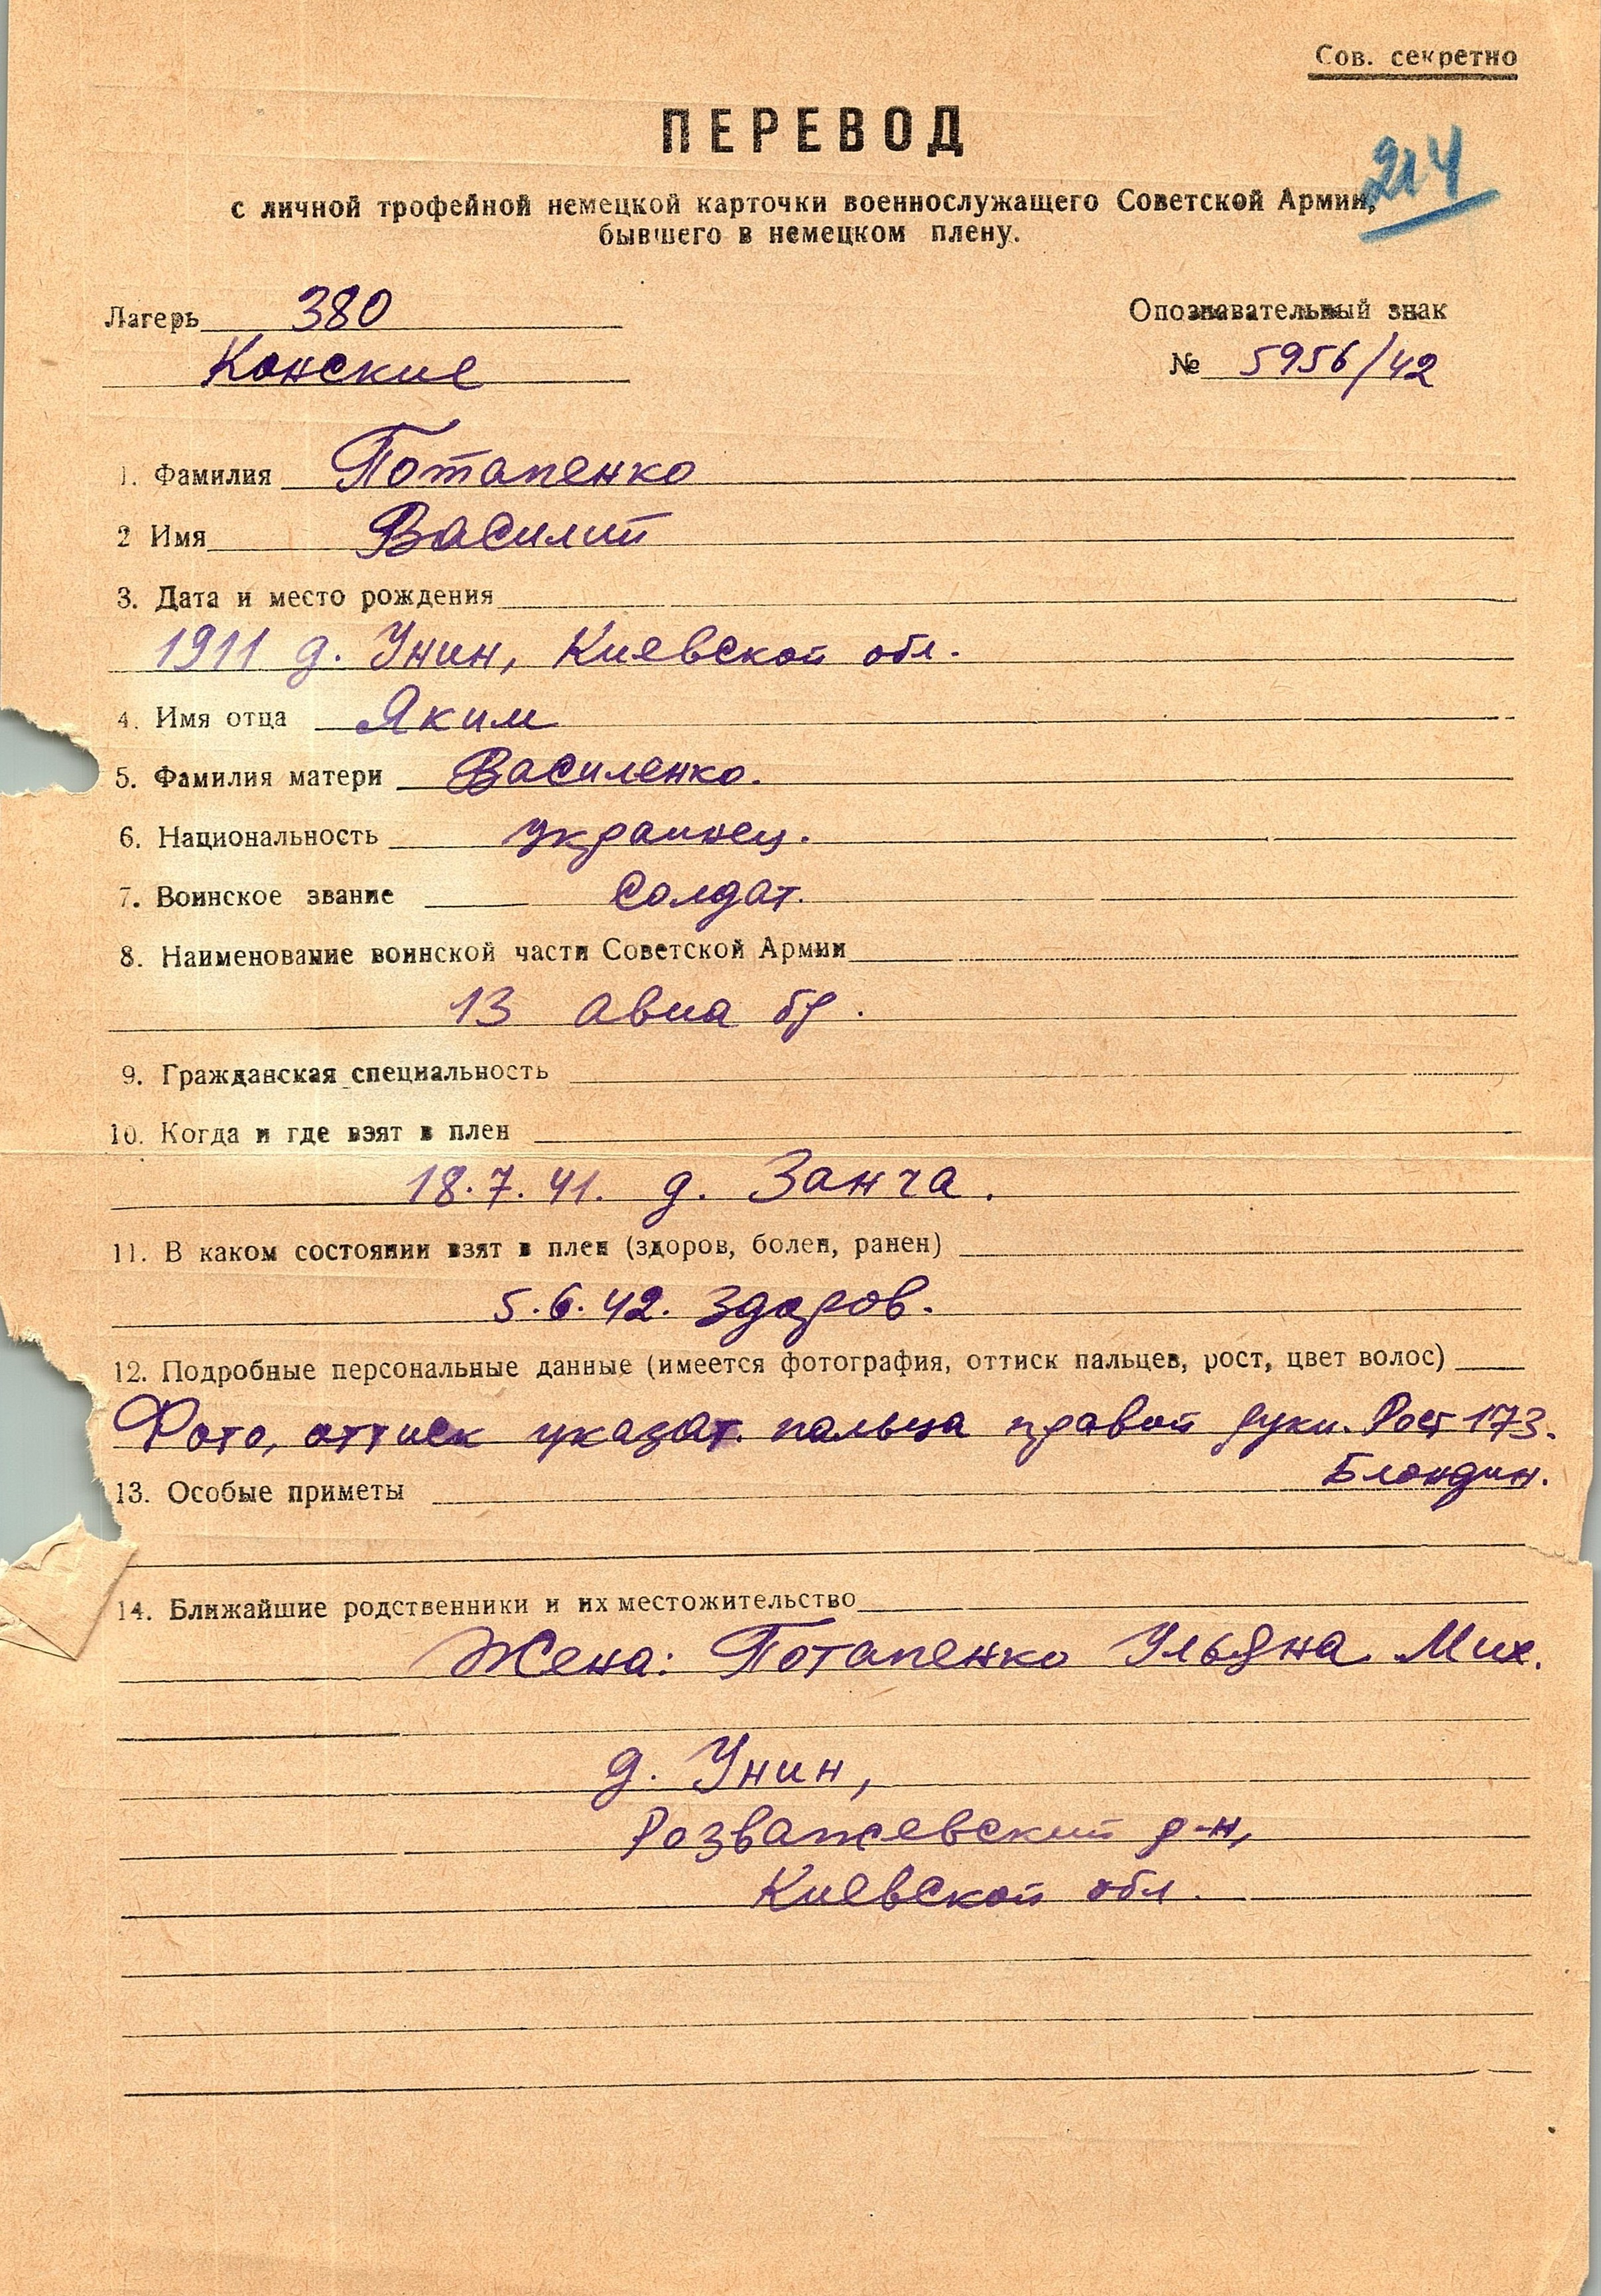 Сов. секретно
ПЕРЕВОД
214
с личной трофейной немецкой карточки военнослужащего Советской Армии,
бывшего в немецком плену.
Лагерь 380
Конские
Опознавательный знак
№ 5956/42
1. Фамилия Потапенко
2 Имя Василий
3. Дата и место рождения
1911 д. Унин, Киевской обл.
4. Имя отца Яким
5. Фамилия матери Василенко.
6. Национальность украинец.
7. Воинское звание Солдат.
8. Наименование воинской части Советской Армии
13 авиа бр.
9. Гражданская специальность
10. Когда и где взят в плен
18.7.41. д. Занча.
11. В каком состоянии взят в плен (здоров, болен, ранен)
5.6.42. Здоров.
12. Подробные персональные данные (имеется фотография, оттиск пальцев, рост, цвет волос)
Фото, оттиск указат. пальца правой руки. Рост 173.
Блондин.
13. Особые приметы
14. Ближайшие родственники и их местожительство
Жена: Потапенко Ульяна Мих.
д. Унин,
Розважевский р-н,
Киевской обл.